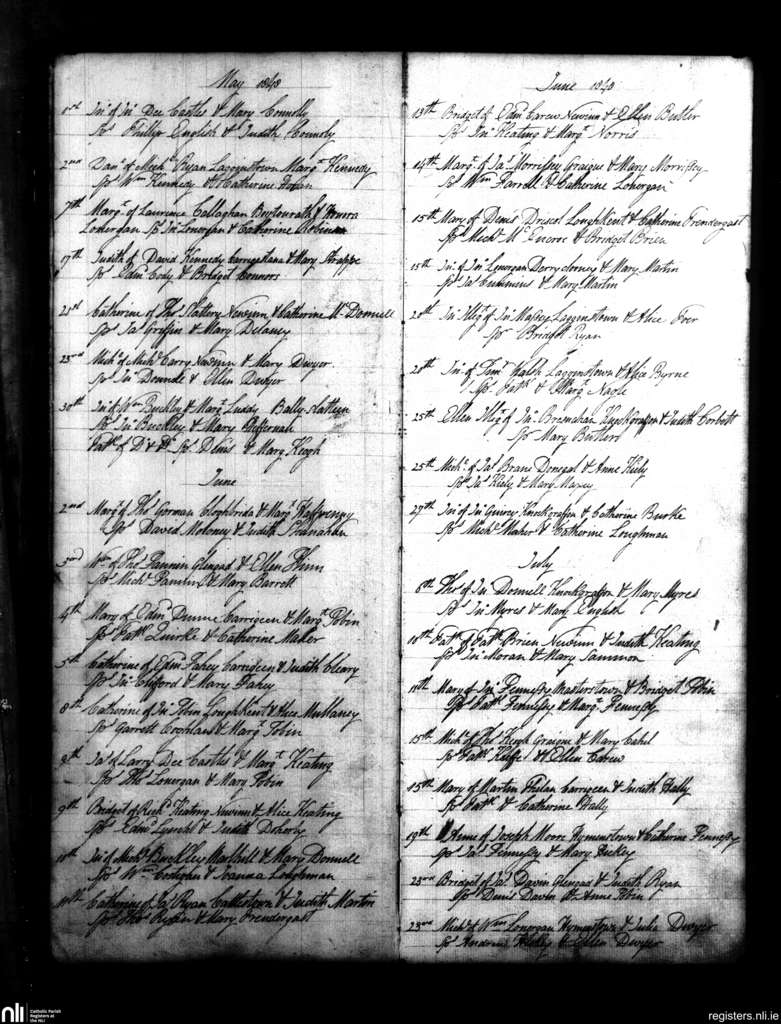 May 1848
1st Jno. of Jno. Dee Castles & Mary Connolly
Sps. Phillip English & Judith Connoly
2nd Dan. of Mich. Ryan Laggenstown Margt. Kennedy
Sps. Wm. Kennedy & Catherine
7th Margt. of Laurence Callaghan Boytonrath &
Lonergan Sps. Jno. Lonergan & Catherine
17th Judith of David Kennedy & Mary Strappe
Sps. Edm. Cody & Bridget Connors
21st Catherine of Thos. Slattery Newinn & Catherine Mc. Donnell
Sps. Jas. Griffin & Mary Delaney
23rd Michl. of Michl. Carry Newinn & Mary Dwyer
Sps. Jno. & Ellen Dwyer
30th Jno. of Wm. Buckley & Margt. Leddy
Sps. Jno. Buckley & Mary Heffernan
Patk. of Do. & Do. Sps. Denis & Mary Keogh
June
2nd Margt. of Thos. Gorman & Margt.
Sps. David Moloney & Judith Shanahan
3rd Wm. of Thos. Glengad & Ellen
Sps. Michl. & Mary Barrett
4th Mary of Edm. Dunne Carrigeen & Margt. Tobin
Sps. Patk. Quirke & Catherine Maher
5th Catherine of Edm. Fahey Carrigeen & Judith Cleary
Sps. Jno. Clifford & Mary Fahey
8th Catherine of Jno. Tobin Loughkent & Alice Mullaney
Sps. Garrett & Margt. Tobin
8th Jas. of Larry Dee Castles & Margt. Keating
Sps. Thos. Lonergan & Mary Tobin
9th Bridget of Richd. Keating Newinn & Alice Keating
Sps. Edm. Lynch & Judith Doherty
11th Jno. of Michl. Buckley & Mary Donnell
Sps. Wm. & Loughman
11th Catherine of Jas. Ryan & Judith Martin
Sps. Thos. Ryan & Mary Prendergast
June 1848
13th Bridget of Edm. Carew Newinn & Ellen Butler
Sps. Jno. Keating & Margt. Norris
14th Margt. of Jas. Morrissey Graigue & Mary Morrissey
Sps. Wm. Farrell & Catherine Lonergan
15th Mary of Denis Driscol Loughkent & Catherine Prendergast
Sps. Michl. Mc & Bridget Brien
15th Jno. of Jno. Lonergan Derryclooney & Mary Martin
Sps. Jas. Cummins & Mary Martin
20th Jno. Illeg. of Jno. Laggenstown & Alice
Sps. Bridget Ryan
20th Jno. of Tim Walsh Laggenstown & Alice Byrne
Sps. Patk. & Margt. Nagle
25th Ellen Illeg. of Jno. Knockgraffon & Judith Corbett
Sps. Mary Butler
25th Michl. of Jas. Donegal & Anne Kiely
Sps. Jas. Kiely & Mary
27th Jno. of Jno. Knockgraffon & Catherine Burke
Sps. Michl. Maher & Catherine Loughman
July
6th Thos. of Jno. Donnell Knockgraffon & Mary Myres
Sps. Jno. Myres & Mary English
10th Patk. of Patk. Brien Newinn & Judith Keating
Sps. Jno. Moran & Mary Sammon
11th Mary of Jno. Fennessy Masterstown & Bridget Tobin
Sps. Patk. Fennessy & Margt. Fennessy
15th Michl. of Thos. Keogh Graigue & Mary Cahel
Sps. Patk. & Ellen Carew
15th Mary of Martin Phelan Carrigeen & Judith Hally
Sps. Patk. & Catherine Hally
19th Anne of Joseph Moore Hymenstown & Catherine Fennessy
Sps. Jas. Fennessy & Mary Hickey
23rd Bridget of Jas. Davin Glengad & Judith Ryan
Sps. Denis Davin & Anne Tobin
23rd Michl. of Wm. Lonergan Hymenstown & Julia Dwyer
Sps. Andrew Hally & Ellen Dwyer
nli
Catholic Parish
Registers at
the NLI
registers.nli.ie